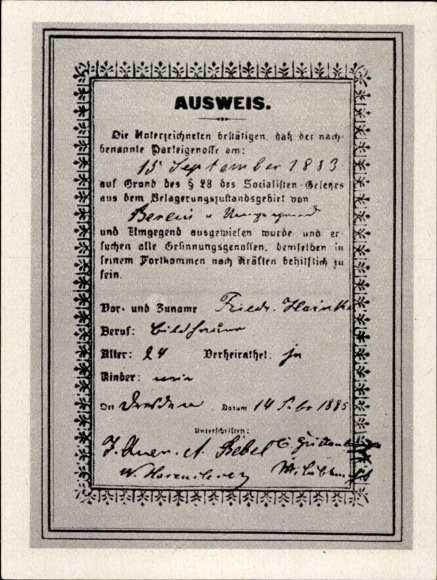 AUSWEIS.
Die Unterzeichneten bestätigen, daß der nach-
benannte Parteigenosse am:
15 September 1883
auf Grund des § 28 des Socialisten-Gesetzes
aus dem Belagerungszustandsgebiet von
Berlin u
und Umgegend ausgewiesen wurde und er-
suchen alle Gesinnungsgenossen, demselben in
seinem Fortkommen nach Kräften behilflich zu
sein.
Vor- und Zuname Friedr.
Beruf: Bildhauer
Alter: 24 Verheirathet: ja
Kinder:
Ort Dresden Datum 14 1885
Unterschriften:
A. Bebel
W.